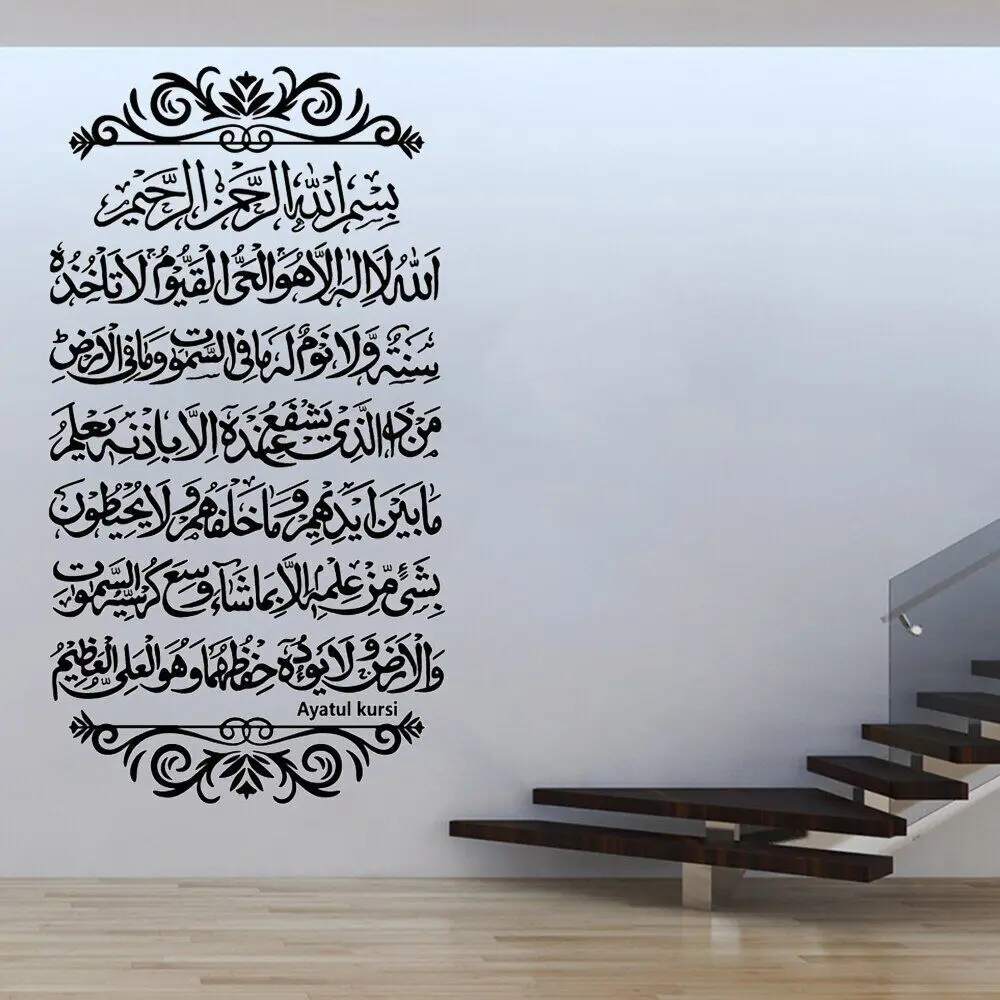 بِسْمِ اللهِ الرَّحْمٰنِ الرَّحِيْمِ
اَللهُ لَا اِلٰهَ اِلَّا هُوَ الْحَىُّ الْقَيُّوْمُ لَا تَاْخُذُهٗ
سِنَةٌ وَّلَا نَوْمٌ لَهٗ مَا فِى السَّمٰوٰتِ وَمَا فِى الْاَرْضِ
مَنْ ذَا الَّذِىْ يَشْفَعُ عِنْدَهٗ اِلَّا بِاِذْنِهٖ يَعْلَمُ
مَا بَيْنَ اَيْدِيْهِمْ وَمَا خَلْفَهُمْ وَلَا يُحِيْطُوْنَ
بِشَىْءٍ مِّنْ عِلْمِهٖ اِلَّا بِمَا شَآءَ وَسِعَ كُرْسِيُّهُ السَّمٰوٰتِ
وَالْاَرْضَ وَلَا يَؤُدُهٗ حِفْظُهُمَا وَهُوَ الْعَلِىُّ الْعَظِيْمُ
Ayatul kursi